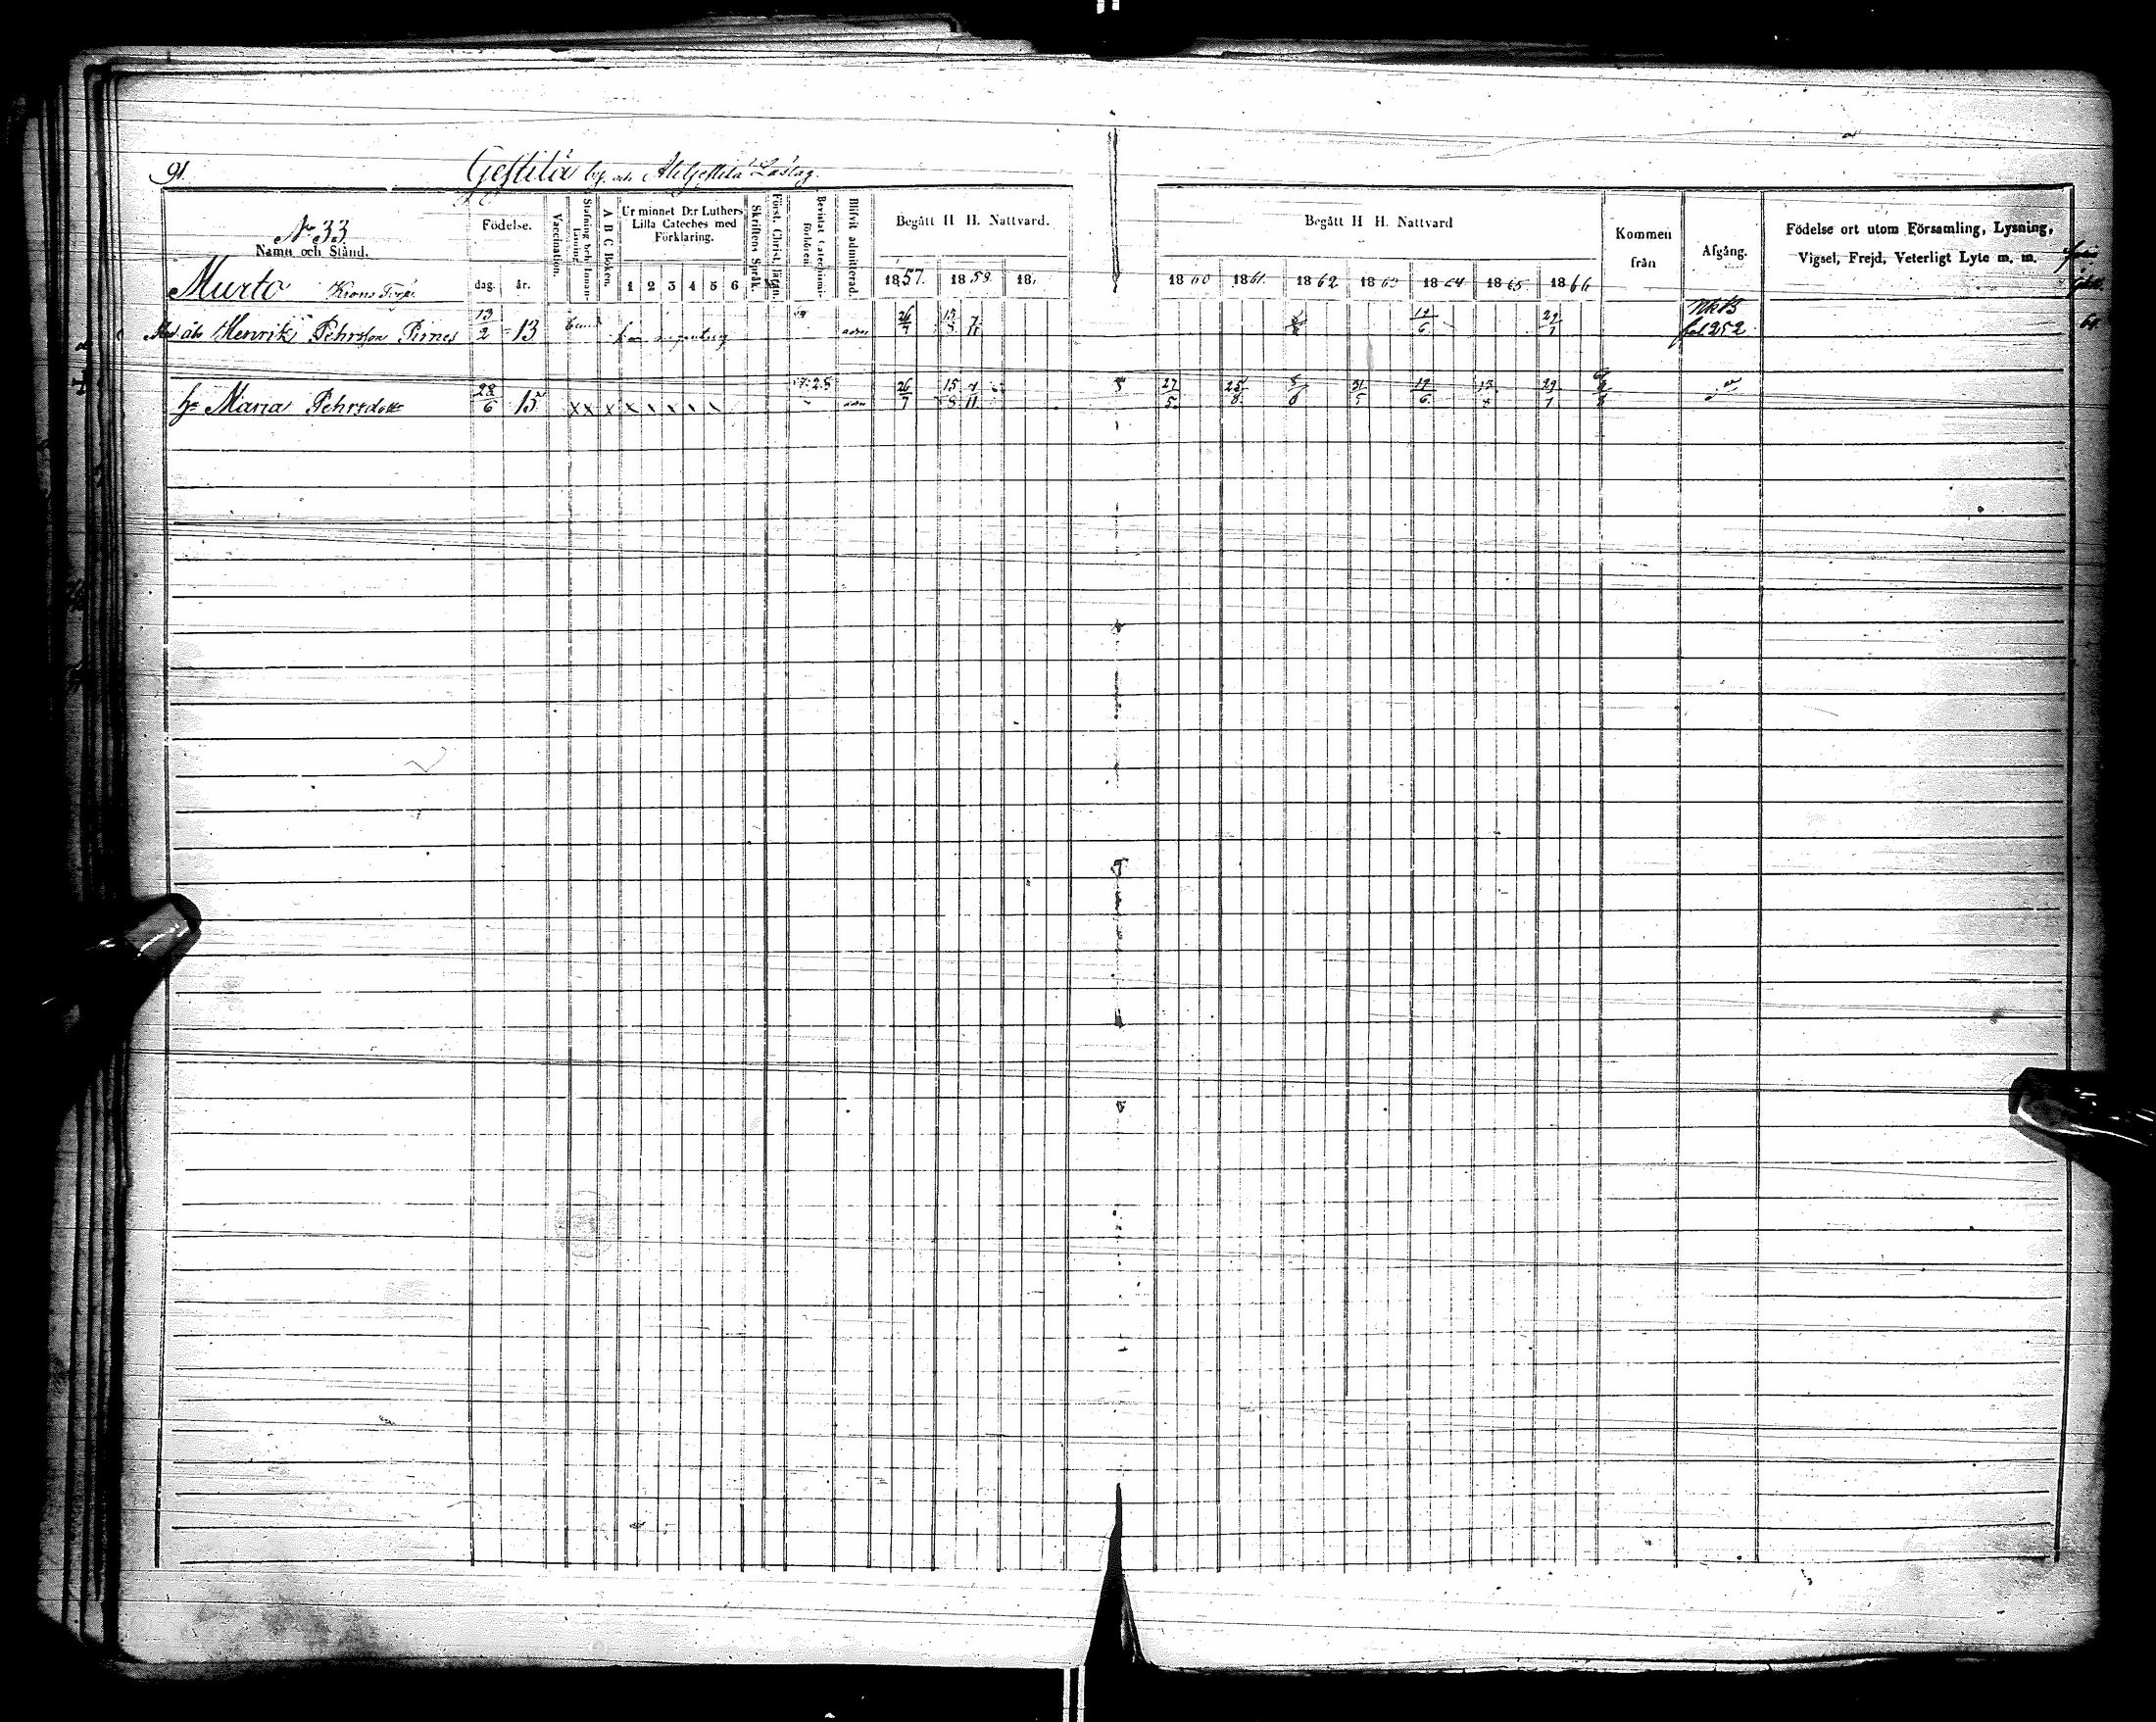 91.
Gestilä by. och AliGestilä Laslag.
No 33
Namn och Stånd.
Födelse.
dag.
år.
Vaccination.
Stafning och Innan-Läsning.
A B C Boken.
Ur minnet D:r Luthers
Lilla Cateches med
Förklaring.
1 2 3 4 5 6
Skriftens Språk.
Förståt. Christ. läran.
Bevistat Catechismi-förhören.
Blifvit admitterad.
Begått H H. Nattvard.
1857. 1859. 18
Begått H H. Nattvard
1860 1861. 1862 1863 1864 1865. 1866
Kommen
från
Afgång.
Födelse ort utom Församling, Lysning,
Vigsel, Frejd, Veterligt Lyte m. m.
Murto Krons Torp.
Henrik Pehrsson Pirnes 13/2 13 adm 26/7 12/6 29/1 NKB fol 252
hu Maria Pehrsdotter 28/6 15 x x x x 7.25 adm 26/7 15/8 7/11 27/5 25/8 5/8 31/5 12/6 29/1